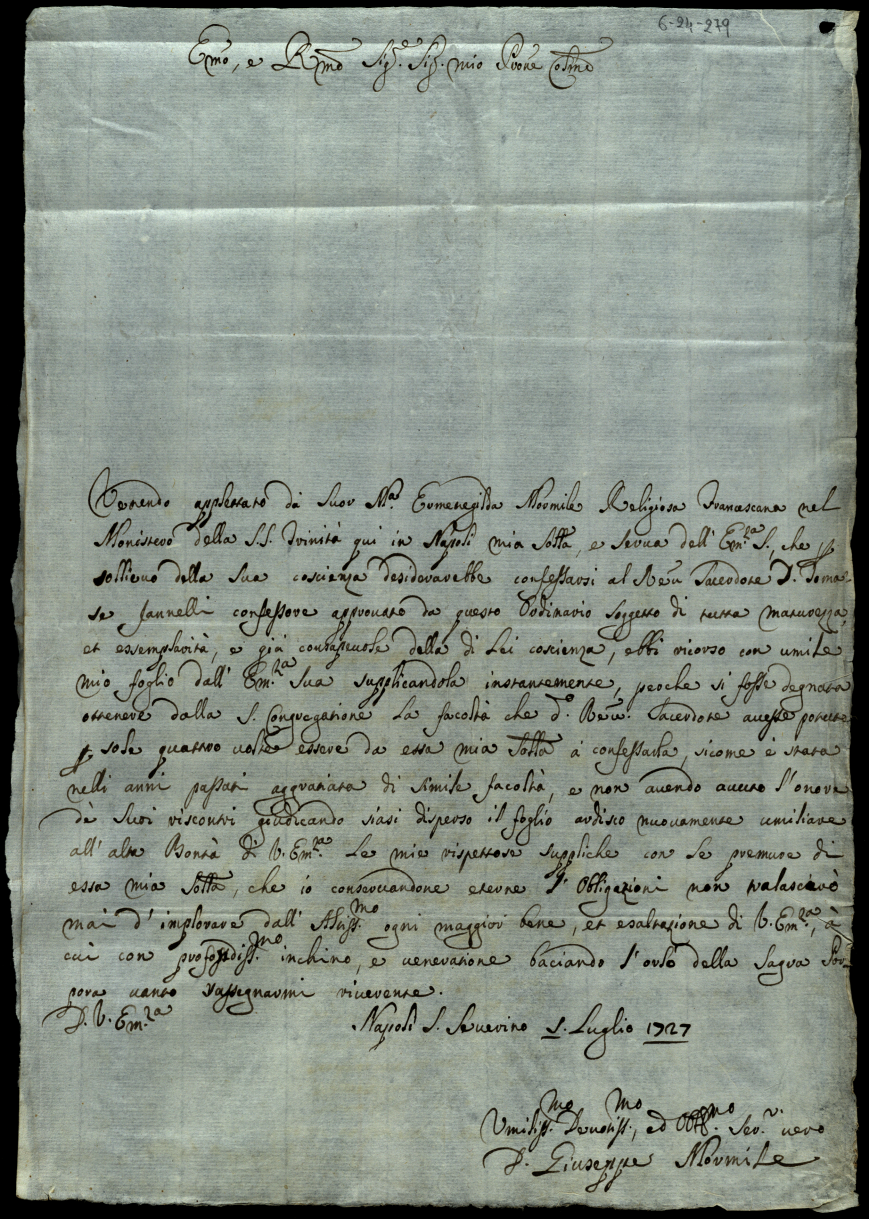 6-24-279
Em̃o, e Rm̃o Sig.e Sig. mio Pr̃one Col̃mo
Venendo apprettato da Suor M.a Ermenegilda Mormile Religiosa Francescana nel
Monistero della S.S. Trinità qui in Napoli mia Sorella, e serva dell' Em.za S., che p
sollievo della sua coscienza desiderarebbe confessarsi al Reu. Sacerdote D. Toma-
se Jannelli confessore approvato da questo Ordinario soggetto di tutta maturezza,
et essemplarità, e già consapevole della di Lei coscienza, ebbi ricorso con umile
mio foglio dall' Em.za Sua supplicandola instantemente, peoche si fosse degnata
ottenere dalla S. Congregatione la facoltà che d.o Reu. Sacerdote avesse potuto
p sole quattro volte essere da essa mia a confessarla, sicome è stata
nelli anni passati aggratiata di simile facoltà, e non avendo avuto l'onore
de suoi riscontri giudicando siasi disperso il foglio ardisco nuovamente umiliare
all' alta Bontà di V. Em.za Le mie rispettose suppliche con le premure di
essa mia, che io conservandone eterne l'Obligazioni non tralascierò
mai d'implorare dall' Altiss.mo ogni maggior bene, et esaltazione di V. Em.za, à
cui con profondiss.mo inchino, e veneratione baciando l'orlo della Sagra Por-
pora vanto rassegnarmi riverente.
D. V. Em.za Napoli S. Severino 1. Luglio 1727
Umiliss.mo Devotiss.mo, ed Obb.mo Ser.r vero
D. Giuseppe Mormile